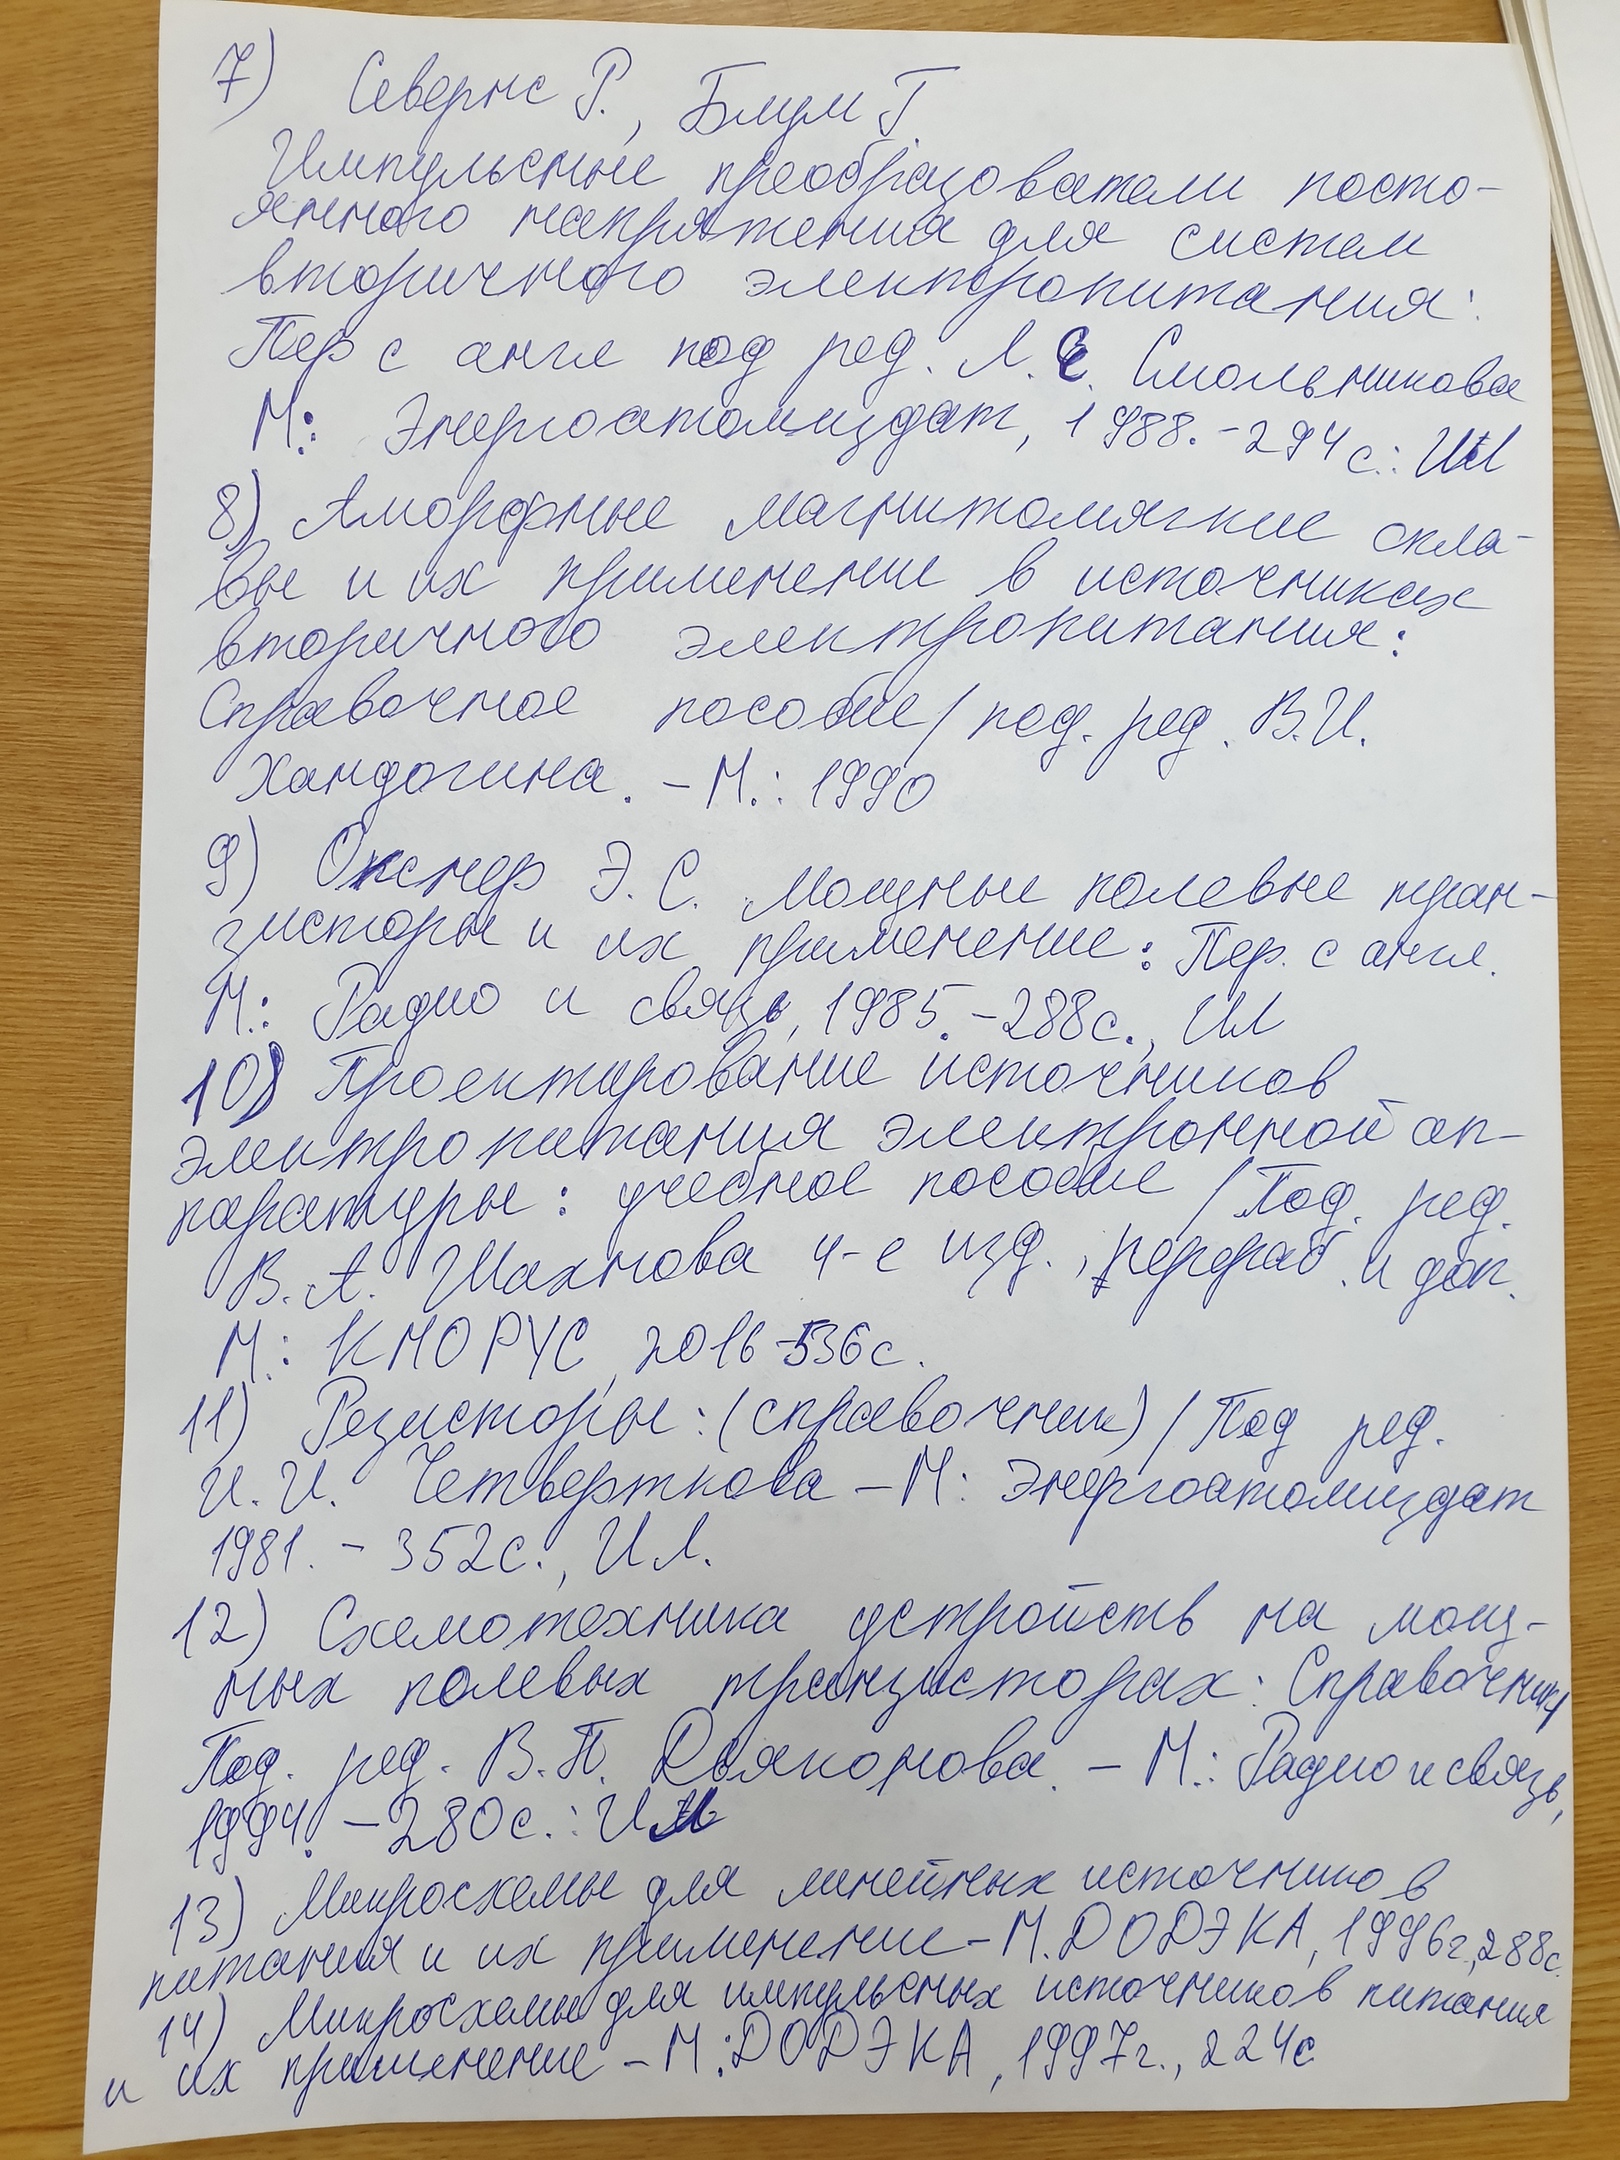 7) Севернс Р., Блум Г.
Импульсные преобразователи посто-
янного напряжения для систем
вторичного электропитания:
Пер с англ под ред. Л.Е. Смольникова
М.: Энергоатомиздат, 1988. - 294 с.: Ил
8) Аморфные магнитомягкие спла-
вы и их применение в источниках
вторичного электропитания:
Справочное пособие / под. ред. В.И.
Хандогина. - М.: 1990
9) Окснер Э.С. Мощные полевые тран-
зисторы и их применение: Пер. с англ.
М.: Радио и связь, 1985. - 288с., Ил
10) Проектирование источников
электропитания электронной ап-
паратуры: учебное пособие / Под. ред.
В.А. Шахнова 4-е изд., перераб. и доп.
М.: КНОРУС, 2016 - 536 с.
11) Резисторы: (справочник) / Под ред.
И.И. Четверткова - М: Энергоатомиздат
1981. - 352с., Ил.
12) Схемотехника устройств на мощ-
ных полевых транзисторах: Справочник/
Под. ред. В.П. Дьяконова. - М.: Радио и связь,
1994. - 280с.: Ил
13) Микросхемы для линейных источников
питания и их применение - М. ДОДЭКА, 1996г., 288с.
14) Микросхемы для импульсных источников питания
и их применение - М.: ДОДЭКА, 1997г., 224с